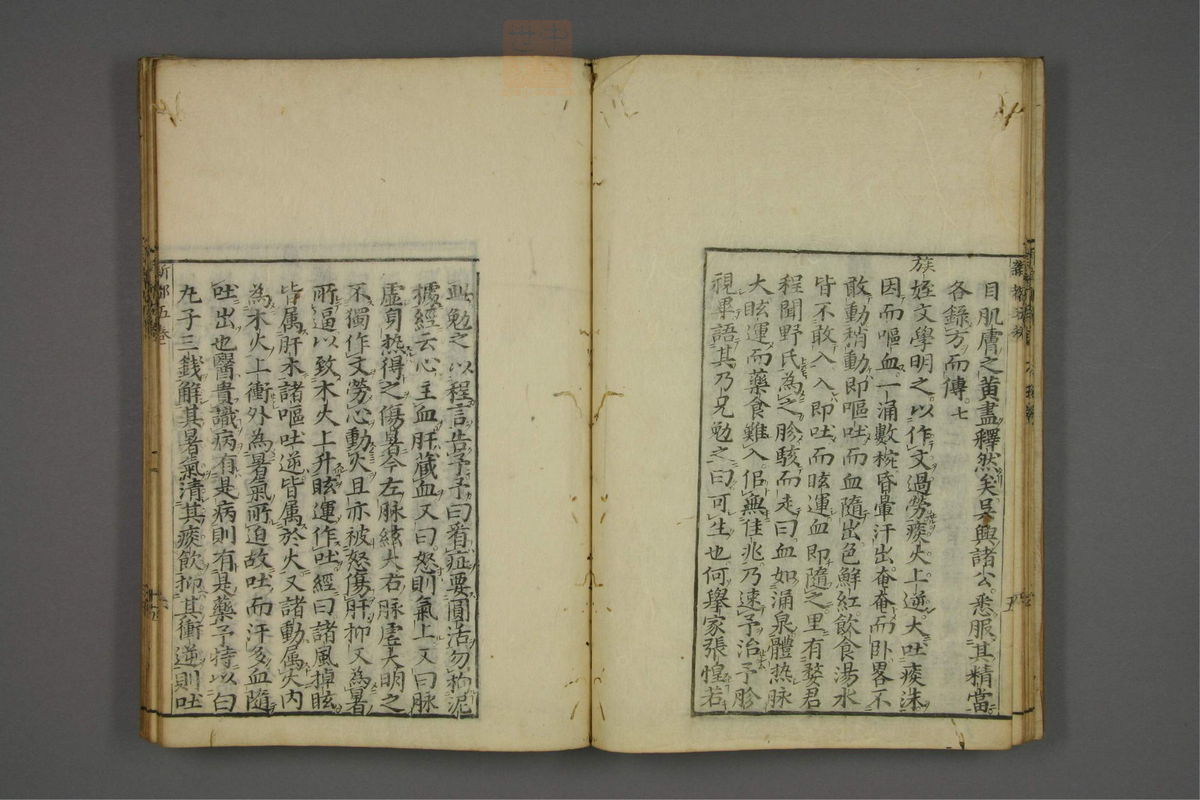 目肌膚之黄盡釋然矣吳興諸公悉服其精當
各錄方而傳七
族姪文學明之以作文過勞痰火上逆大吐痰沫
因而嘔血一涌數椀昏暈汗出奄奄而卧畧不
敢動稍動即嘔吐而血隨出色鮮紅飲食湯水
皆不敢入入即吐而眩運血即隨之里有婺君
程聞野氏為之胗駭而走曰血如涌泉體热脉
大眩運而藥食難入佀無佳兆乃速予治予胗
視畢語其乃兄勉之曰可生也何舉家張惶若
此勉之以程言告予予曰看症要圓活勿拘泥
據經云心主血肝藏血又曰怒則氣上又曰脉
虚身热得之傷暑今左脉絃大右脉虚大明之
不獨作文勞心動火且亦被怒傷肝抑又為暑
所逼以致木火上升眩運作吐經曰諸風掉眩
皆属肝木諸嘔吐逆皆属於火又諸動属火内
為木火上衝外為暑氣所迫故吐而汗多血隨
吐出也醫貴識病有是病則有是藥予特以白
丸子三錢解其暑氣清其痰飲抑其衝逆則吐
新都 五卷